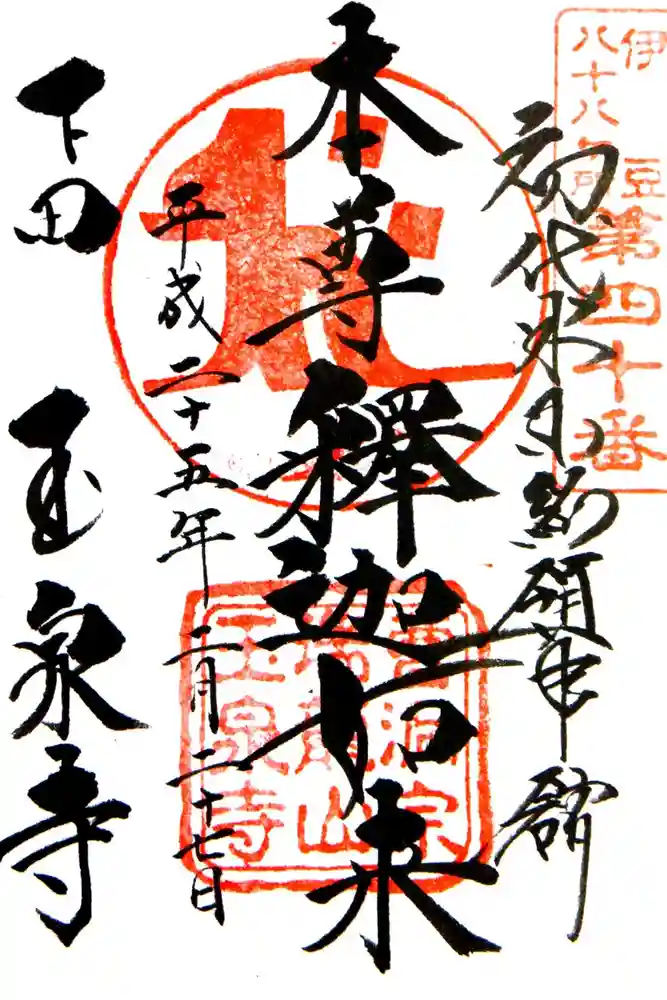 伊豆
八十八ヶ所
第四十番
初代米国総領事舘
本尊釋迦如来
平成二十五年二月二十七日
下田 玉泉寺
曹洞宗
瑞龍山
玉泉寺